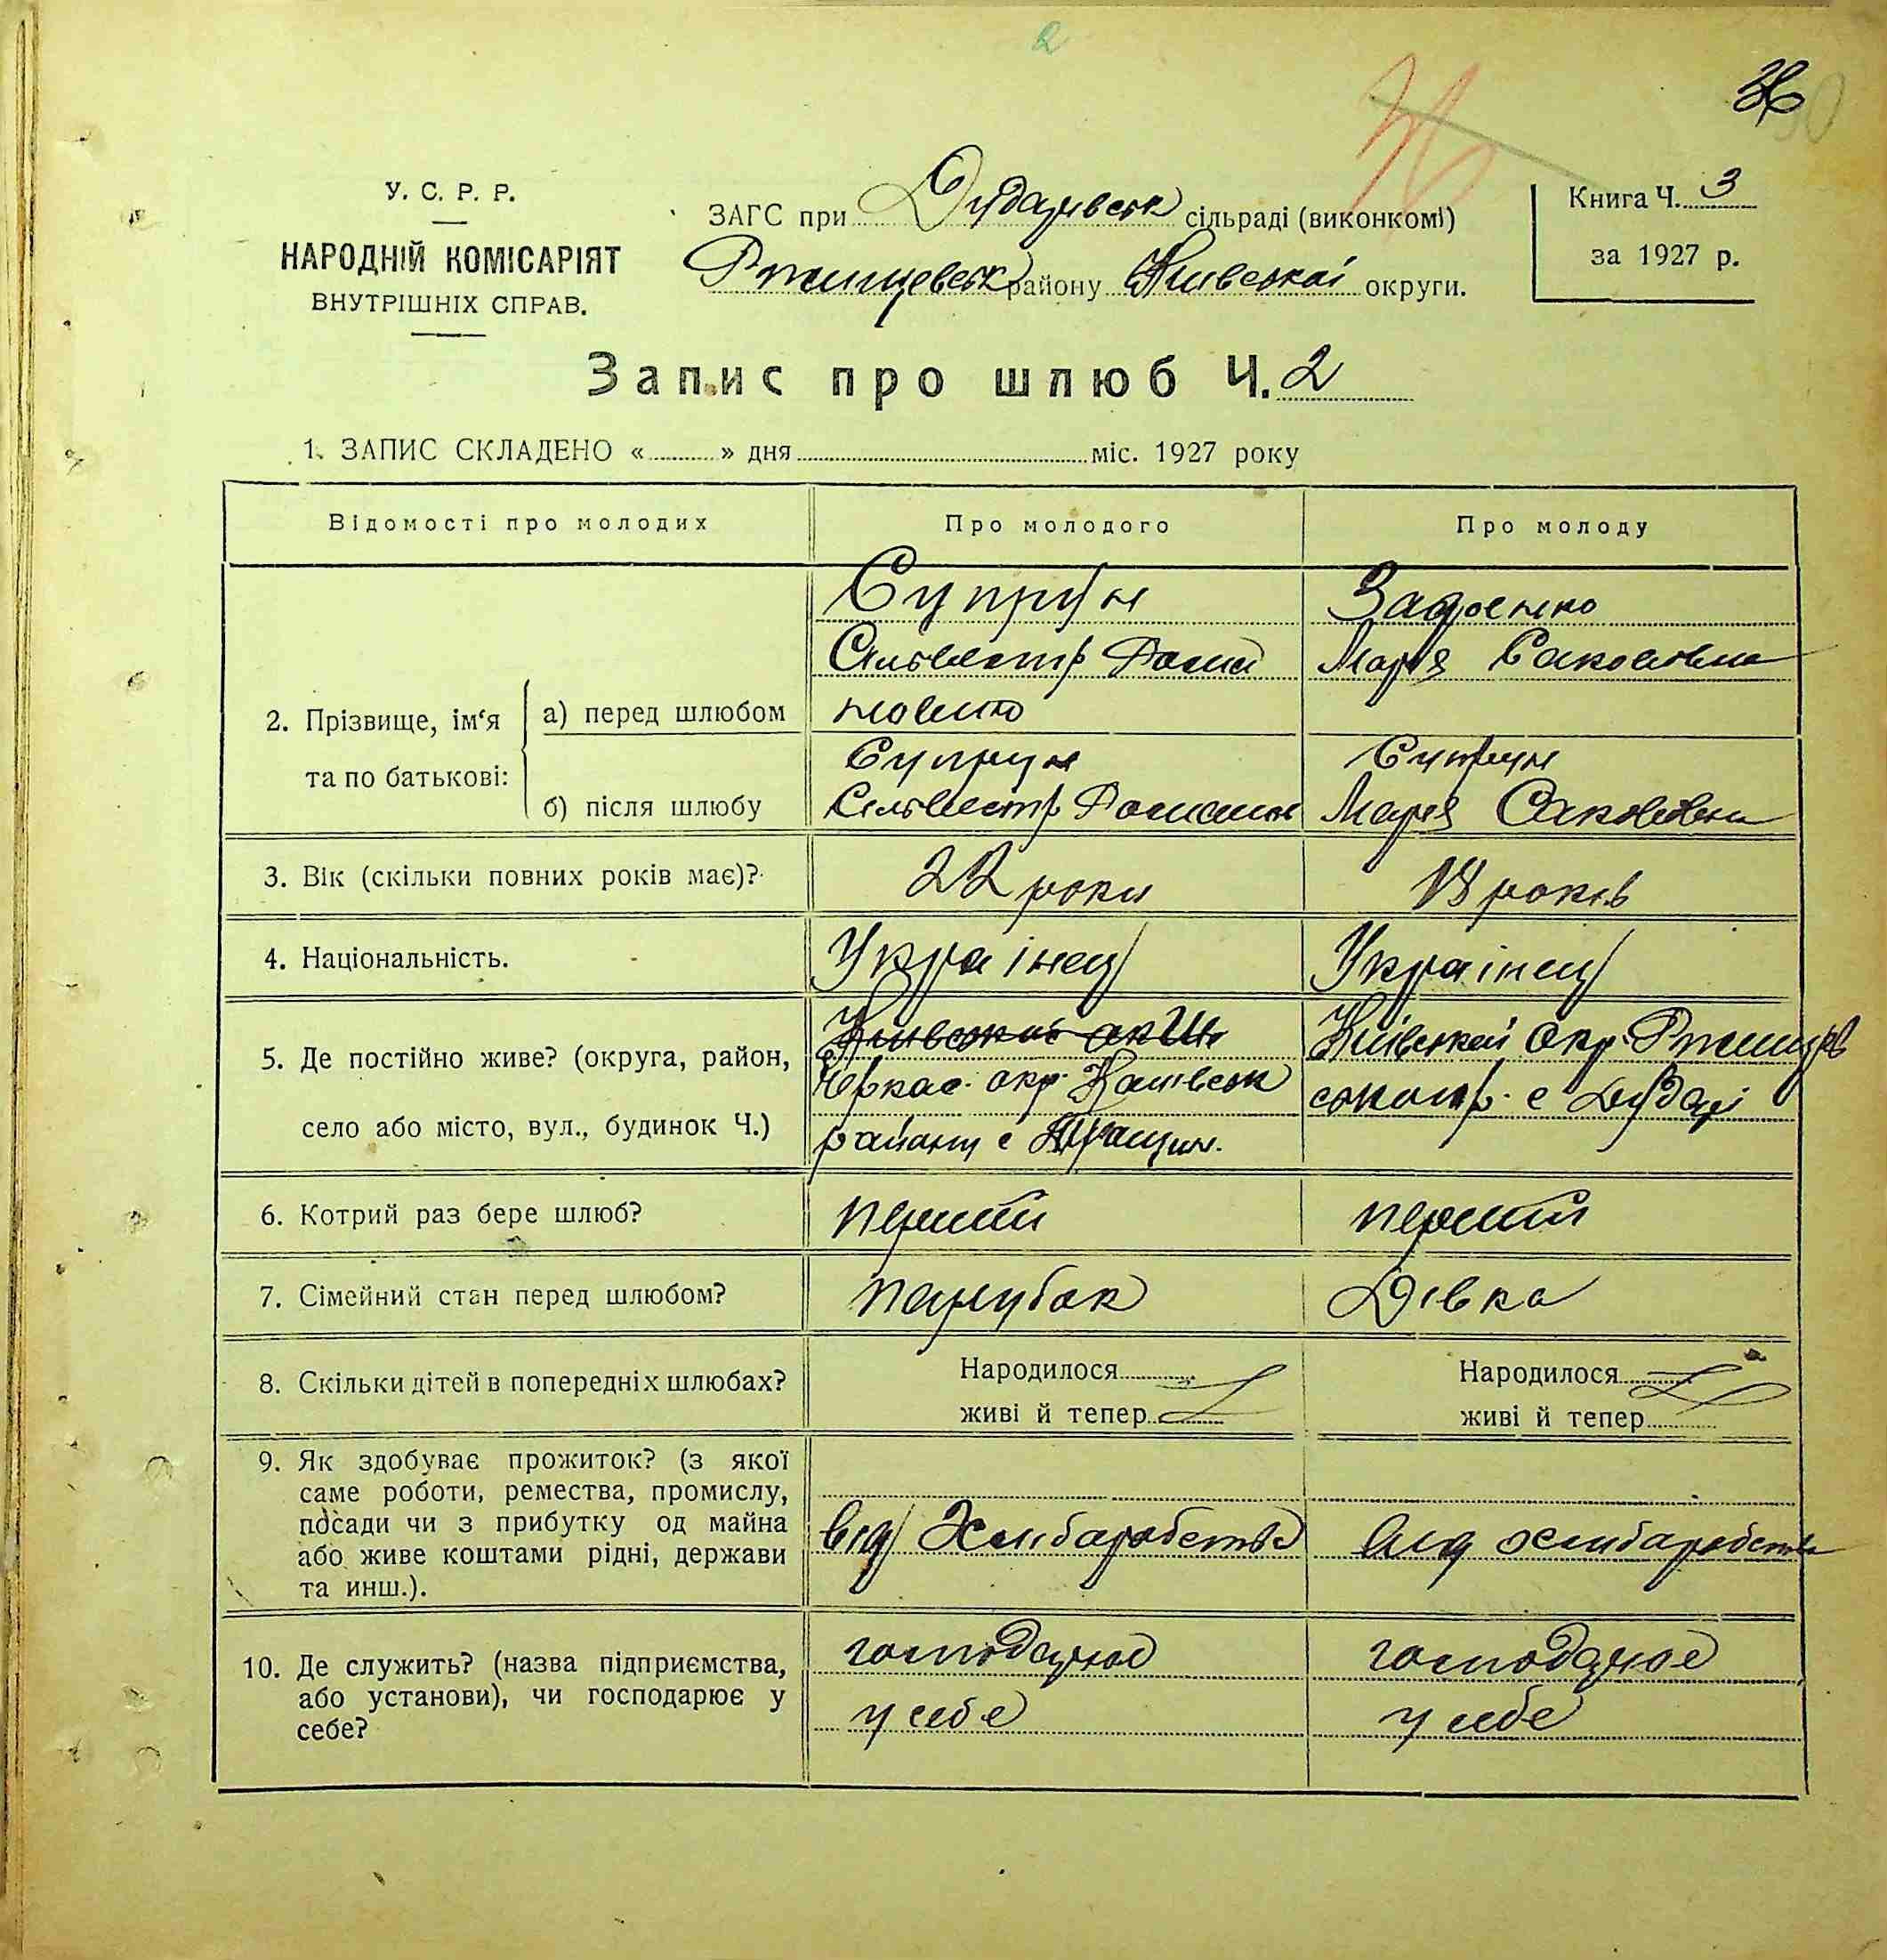 2
36
У. С. Р. Р.
НАРОДНІЙ КОМІСАРІЯТ
ВНУТРІШНІХ СПРАВ.
ЗАГС при Дударівськ сільраді (виконкомі)
Ржищевськ району Київської округи.
Книга Ч. 3
за 1927 р.
Запис про шлюб Ч. 2
1. ЗАПИС СКЛАДЕНО « » дня міс. 1927 року
Відомості про молодих
Про молодого
Про молоду
2. Прізвище, ім‘я
та по батькові:
а) перед шлюбом
Супрун
Сильвестр
Марія
б) після шлюбу
Супрун
Сильвестр
Супрун
Марія
3. Вік (скільки повних років має)?
22 роки
18 років
4. Національність.
Українец
Українец
5. Де постійно живе? (округа, район,
село або місто, вул., будинок Ч.)
Черкас. окр. Канівськ
району с
Київської Окр. Ржищів
с Дударі
6. Котрий раз бере шлюб?
перший
перший
7. Сімейний стан перед шлюбом?
парубок
Дівка
8. Скільки дітей в попередніх шлюбах?
Народилося
живі й тепер
Народилося
живі й тепер
9. Як здобуває прожиток? (з якої
саме роботи, ремества, промислу,
посади чи з прибутку од майна
або живе коштами рідні, держави
та инш.).
від Хлибаробства
від хлибаробства
10. Де служить? (назва підприємства,
або установи), чи господарює у
себе?
господарює
у себе
господарює
у себе